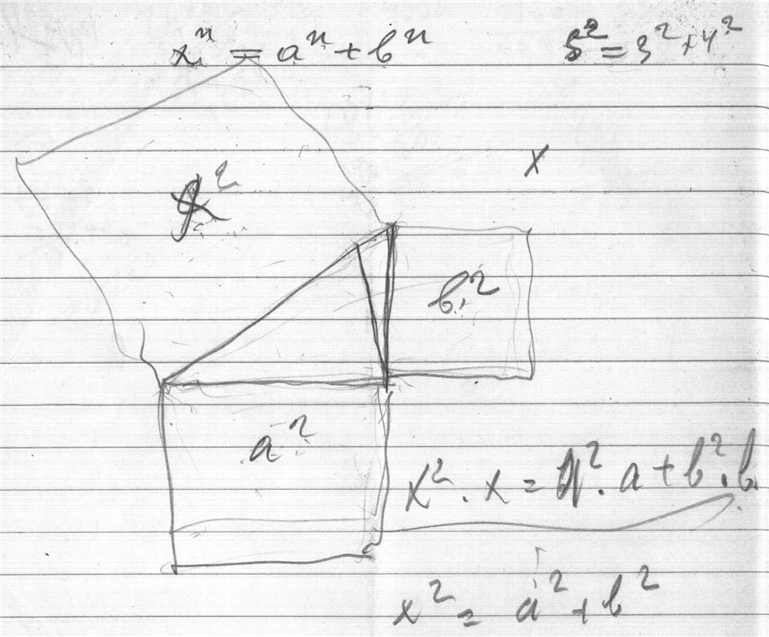 xⁿ = aⁿ + bⁿ
5² = 3² + 4²
x
x²
b²
a²
x² . x = a² . a + b² . b
x² = a² + b²